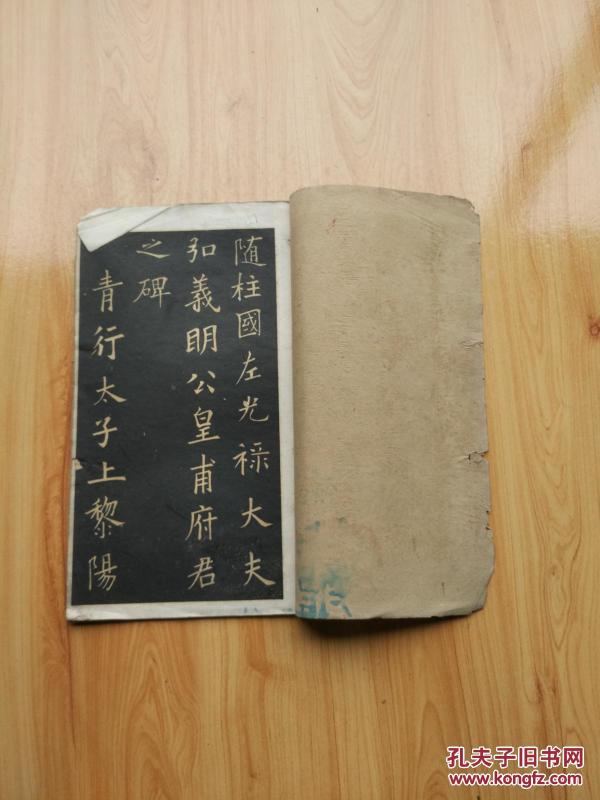 随柱國左光禄大夫
弘義明公皇甫府君
之碑
青行太子上黎陽
孔夫子旧书网
www.kongfz.com